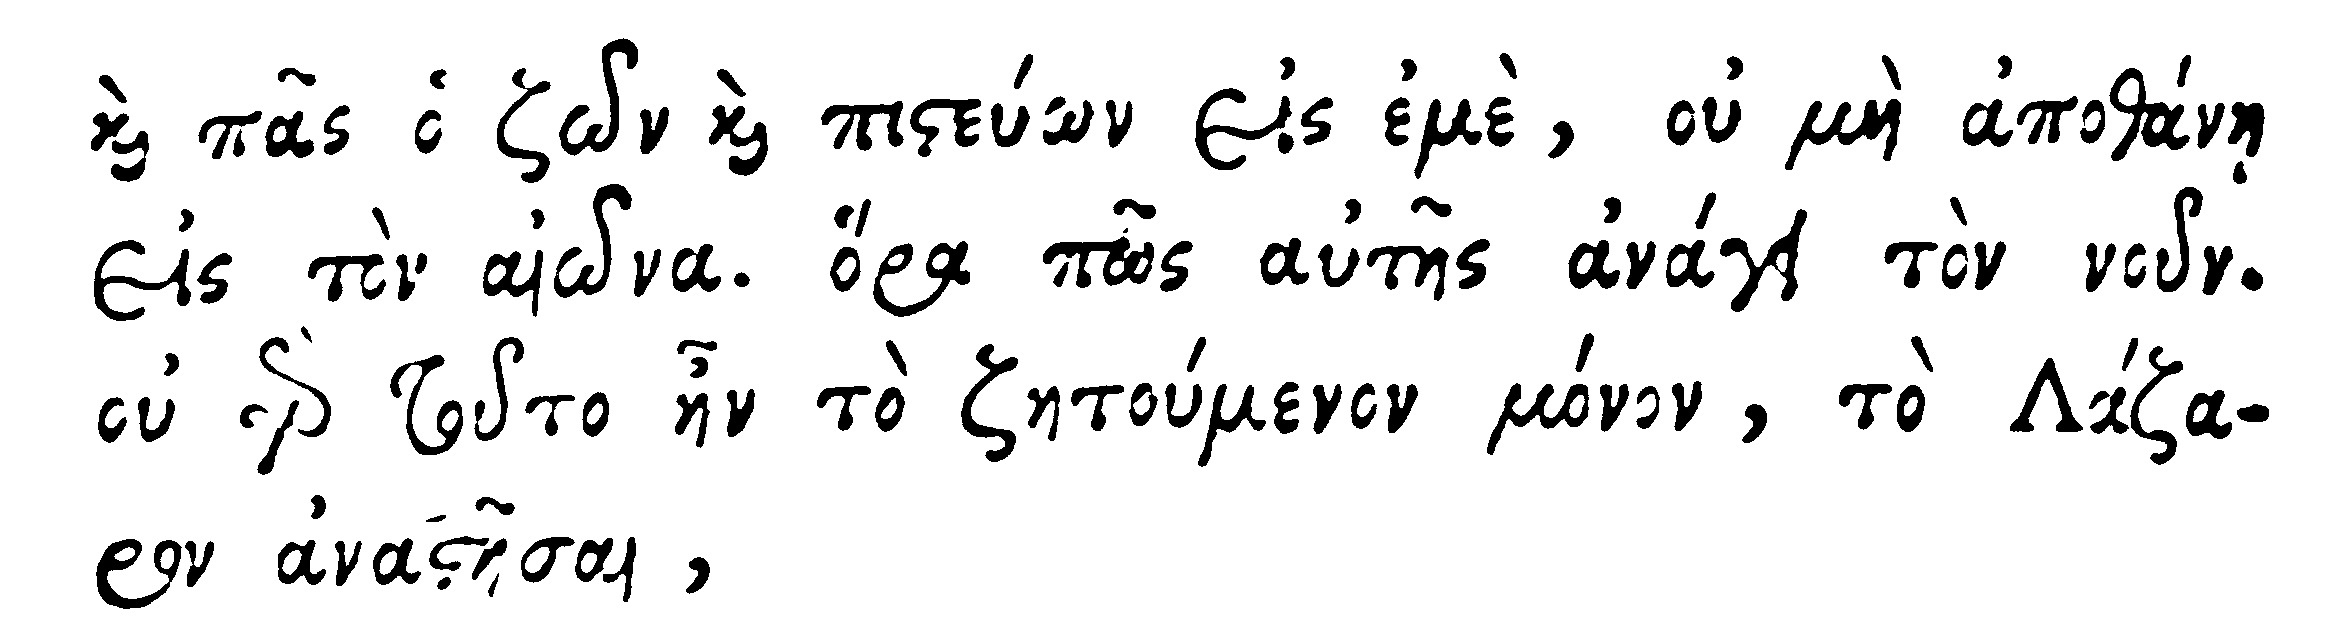 ϗ̀ πᾶς ὁ ζῶν ϗ̀ πιϛεύων εἰς ἐμὲ, οὐ μὴ ἀποθάνῃ
εἰς τὸν αἰῶνα. ὅρα πῶς αὐτῆς ἀνάγει τὸν νοῦν.
οὐ γὰρ τοῦτο ἦν τὸ ζητούμενον μόνον, τὸ Λάζα-
ρον ἀναϛῆσαι,